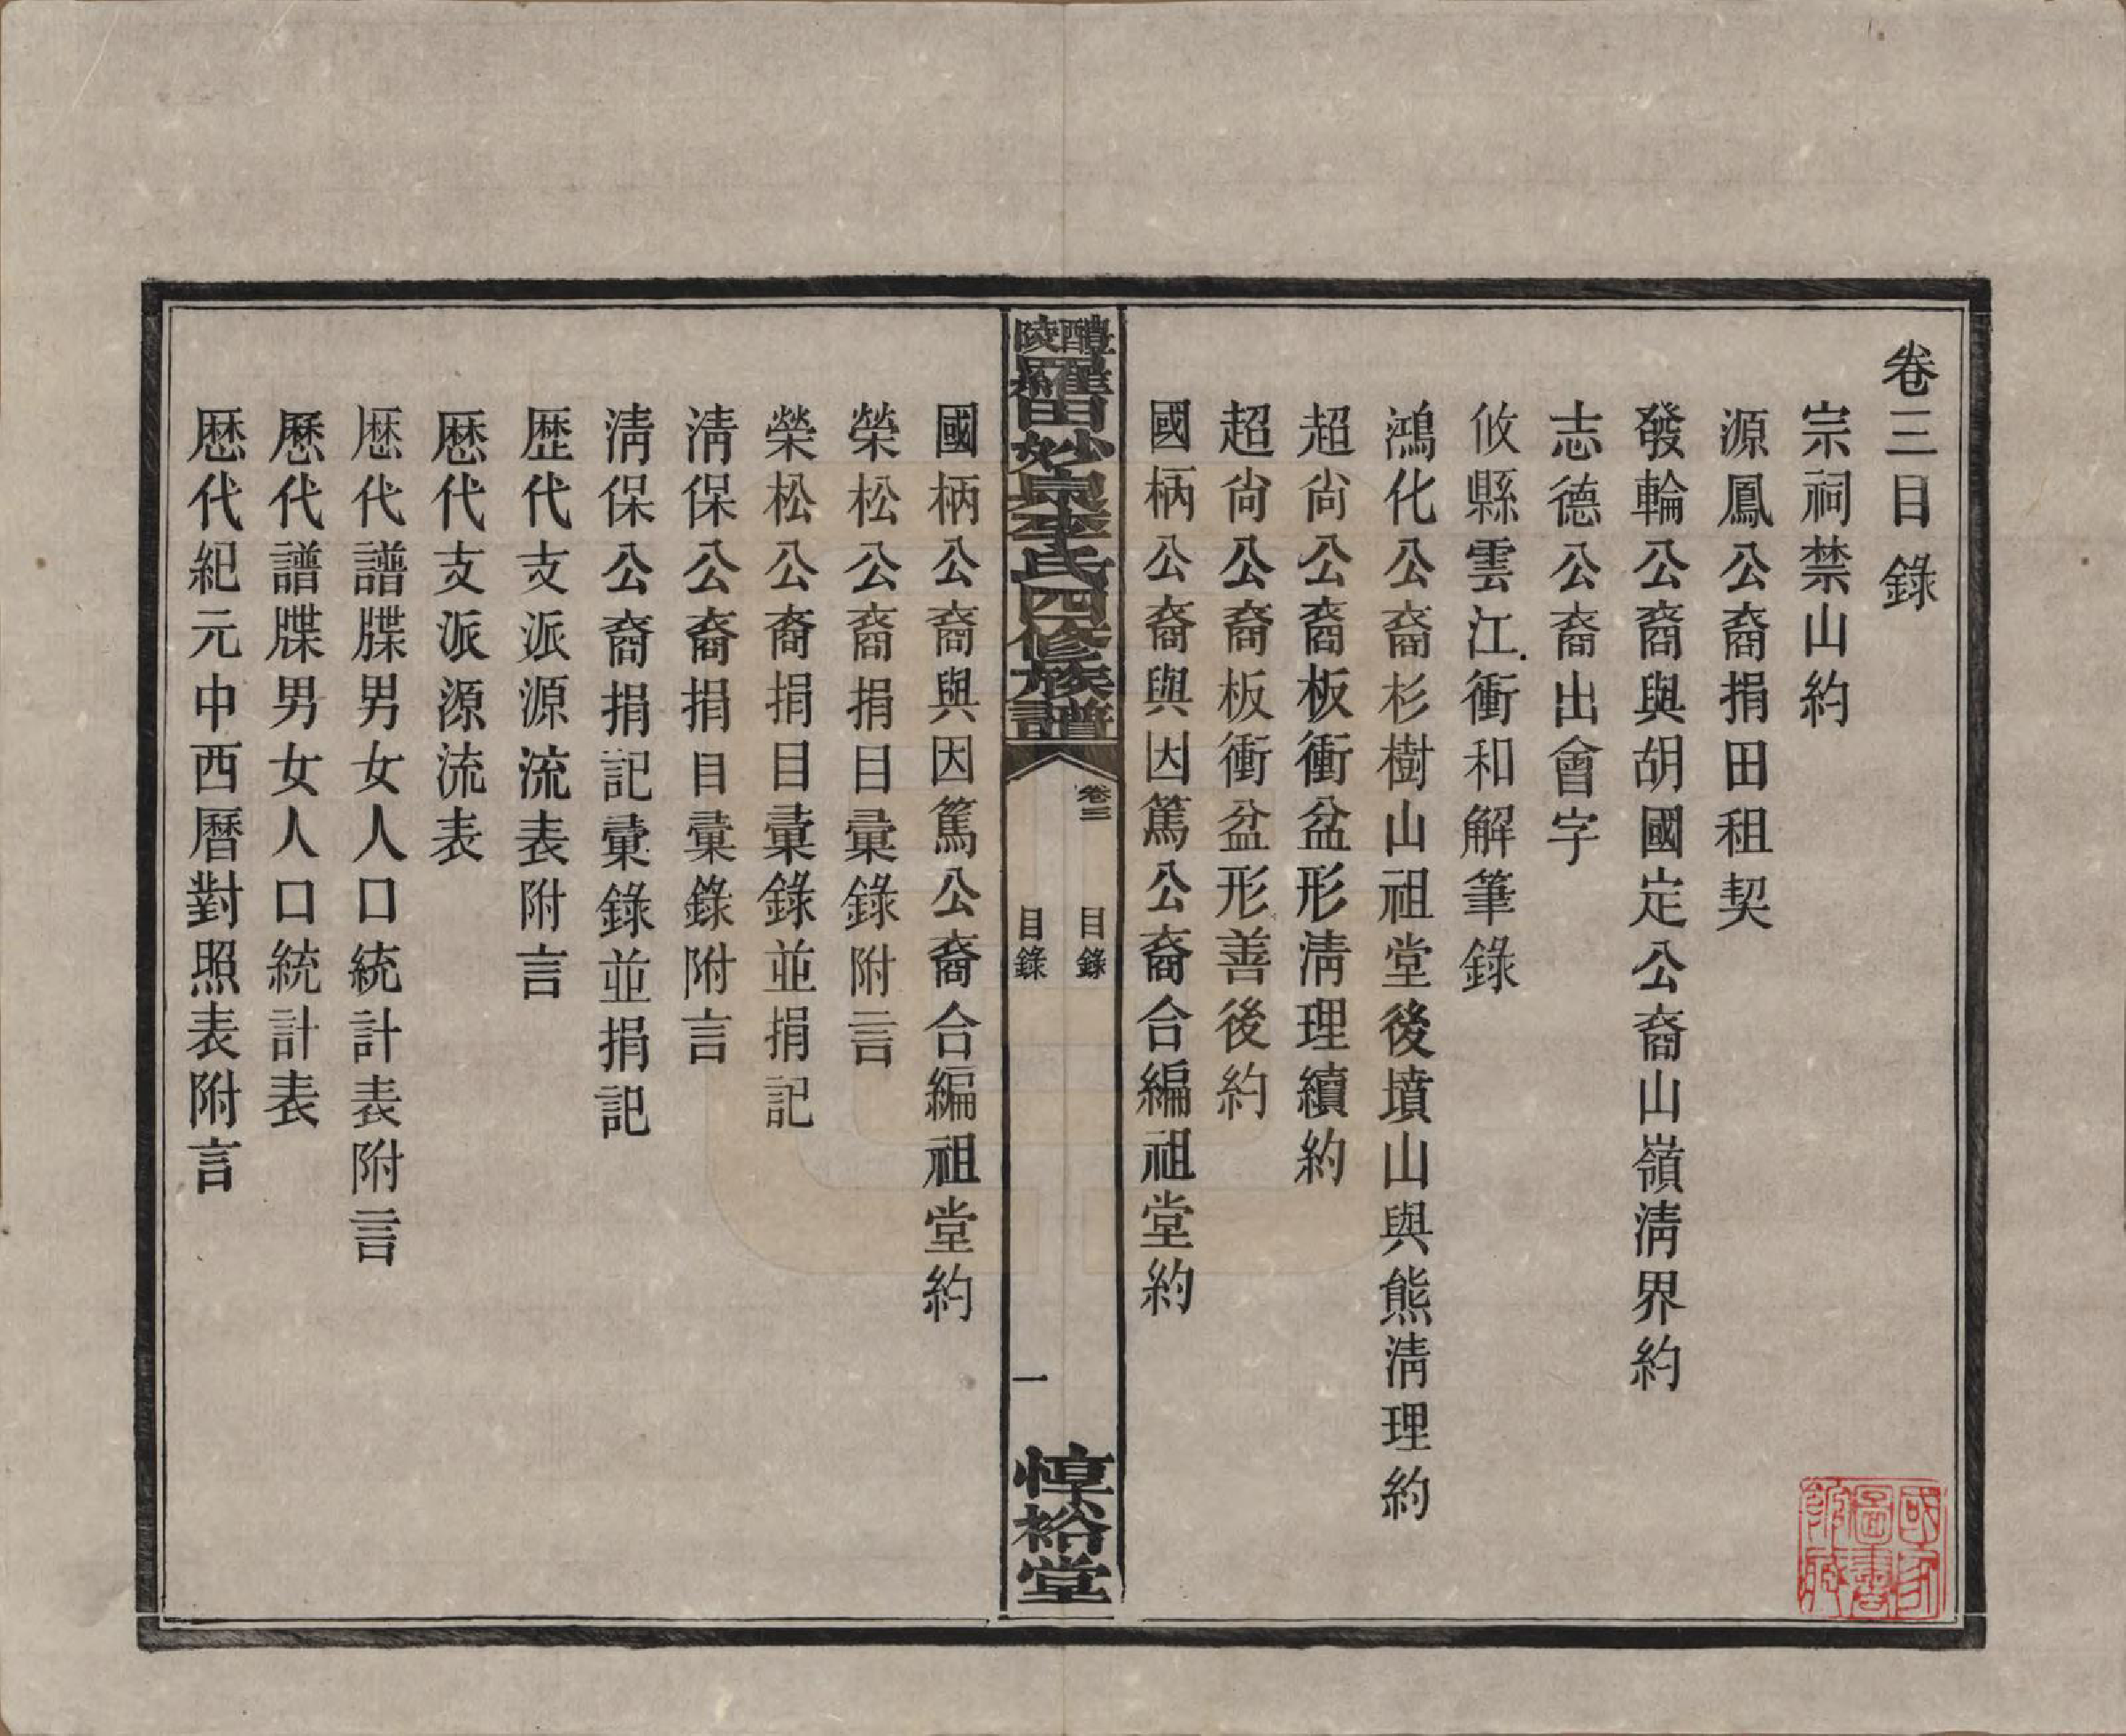 卷三目錄
宗祠禁山約
源鳳公裔捐田租契
發輪公裔與胡國定公裔山嶺淸界約
志德公裔出會字
攸縣雲江衝和解筆錄
鴻化公裔杉樹山祖堂後墳山與熊淸理約
超尙公裔板衝盆形淸理續約
超尙公裔板衝盆形善後約
國柄公裔與因篤公裔合編祖堂約
醴陵羅田妙泉李氏四修族譜
卷三
目錄
目錄
一
惇裕堂
國柄公裔與因篤公裔合編祖堂約
榮松公裔捐目彙錄附言
榮松公裔捐目彙錄並捐記
淸保公裔捐目彙錄附言
淸保公裔捐記彙錄並捐記
歷代支派源流表附言
歷代支派源流表
歷代譜牒男女人口統計表附言
歷代譜牒男女人口統計表
歷代紀元中西曆對照表附言
國家圖書館藏